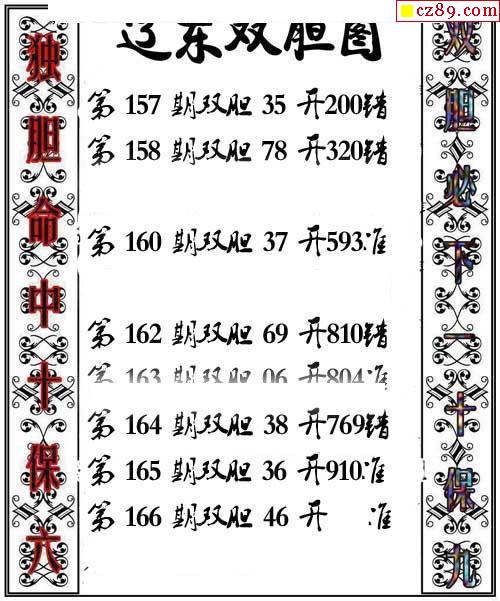 cz89.com
辽东双胆图
独胆命中十保六
第 157 期双胆 35 开200错
第 158 期双胆 78 开320错
第 160 期双胆 37 开593准
第 162 期双胆 69 开810错
第 163 期双胆 06 开804准
第 164 期双胆 38 开769错
第 165 期双胆 36 开910准
第 166 期双胆 46 开 准
双胆必下一十保九